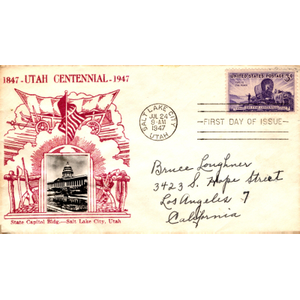 1847 - UTAH CENTENNIAL - 1947
UNITED STATES POSTAGE
SALT LAKE CITY
JUL 24
9-AM
1947
UTAH
FIRST DAY OF ISSUE
Bruce Loughner
3423 S. Hope Street
Los Angeles 7
California
State Capitol Bldg.—Salt Lake City, Utah